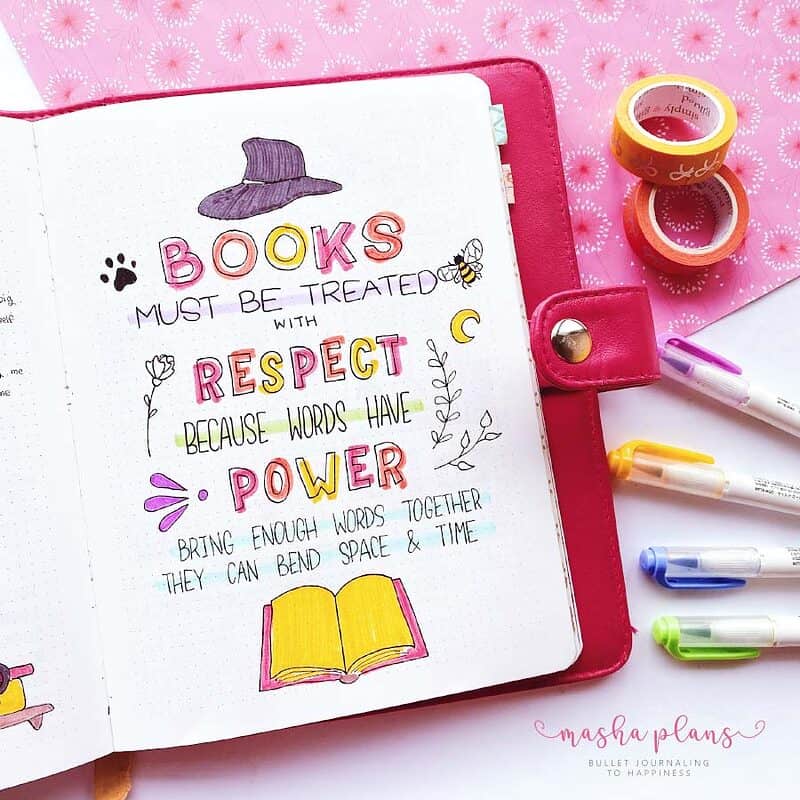 BOOKS
MUST BE TREATED
WITH
RESPECT
BECAUSE WORDS HAVE
POWER
BRING ENOUGH WORDS TOGETHER
THEY CAN BEND SPACE & TIME
me
simply gilded
masha plans
BULLET JOURNALING
TO HAPPINESS